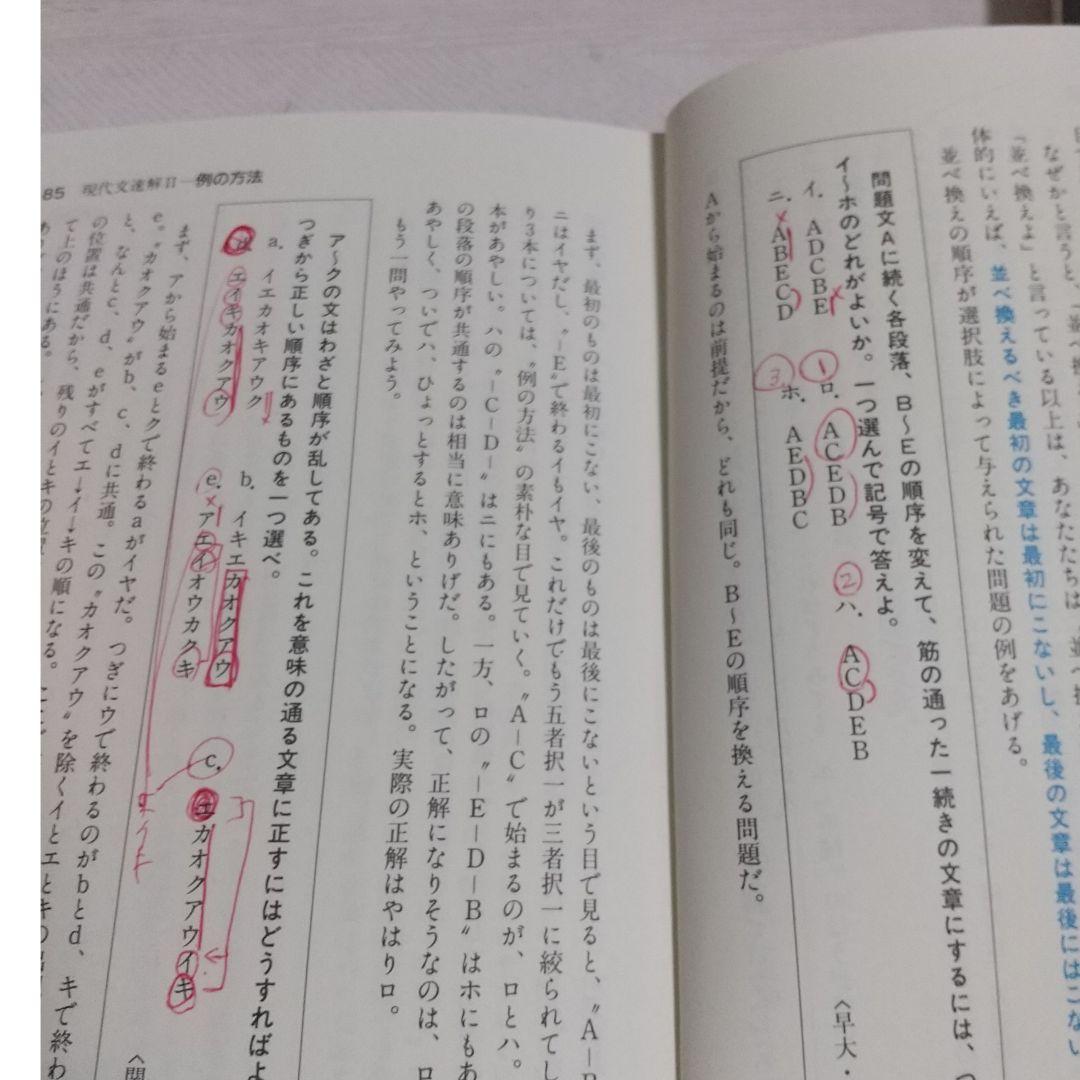 なぜかと言うと、
「並べ換えよ」と言っている以上は、あなたたちは、
体的にいえば、並べ換えるべき最初の文章は最初にこないし、最後の文章は最後にはこない
並べ換えの順序が選択肢によって与えられた問題の例をあげる。
問題文Aに続く各段落、B〜Eの順序を変えて、筋の通った一続きの文章にするには、
イ〜ホのどれがよいか。一つ選んで記号で答えよ。
イ．ADCBE ロ．ACEDB ハ．ACDEB
ニ．ABECD ホ．AEDBC
① ② ③
〈早大・
Aから始まるのは前提だから、どれも同じ。B〜Eの順序を換える問題だ。
まず、最初のものは最初にこない、最後のものは最後にこないという目で見ると、〝A―B
ニはイヤだし、〝―E〟で終わるイもイヤ。これだけでもう五者択一が三者択一に絞られてし
り3本については、〝例の方法〟の素朴な目で見ていく。〝A―C〟で始まるのが、ロとハ。
本があやしい。ハの〝―C―D―〟はニにもある。一方、ロの〝―E―D―B〟はホにもあ
の段落の順序が共通するのは相当に意味ありげだ。したがって、正解になりそうなのは、ロ
あやしく、ついでハ、ひょっとするとホ、ということになる。実際の正解はやはりロ。
もう一問やってみよう。
85 現代文速解II―例の方法
ア〜クの文はわざと順序が乱してある。これを意味の通る文章に正すにはどうすればよ
つぎから正しい順序にあるものを一つ選べ。
a．イエカオキアウク b．イキエカオクアウ c．エカオクアウイキ
d．エイキカオクアウ e．アエイオウカクキ
〈関
まず、アから始まるeとクで終わるaがイヤだ。つぎにウで終わるのがbとd、キで終わ
e。〝カオクアウ〟がb、c、dに共通。この〝カオクアウ〟を除くイとエとキの
と、なんとc、d、eがすべてエ→イ→キの順になる。
の位置は共通だから、残りのイとキの位置
て上のほうにある。